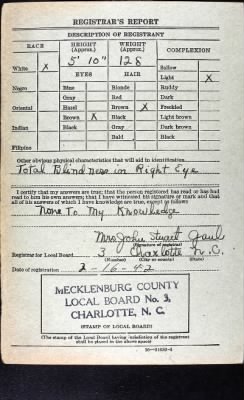 REGISTRAR'S REPORT
DESCRIPTION OF REGISTRANT
RACE HEIGHT (Approx.) WEIGHT (Approx.) COMPLEXION
White X 5' 10" 128 Sallow
EYES HAIR Light X
Negro Blue Blonde Ruddy
Gray Red Dark
Oriental Hazel Brown X Freckled
Brown X Black Light brown
Indian Black Gray Dark brown
Bald Black
Filipino
Other obvious physical characteristics that will aid in identification
Total Blindness in Right Eye
I certify that my answers are true; that the person registered has read or has had
read to him his own answers; that I have witnessed his signature or mark and that
all of his answers of which I have knowledge are true, except as follows
None To My Knowledge
Mrs. John Stuart Gaul
(Signature of registrar)
Registrar for Local Board 3 Charlotte N.C.
(Number) (City or county) (State)
Date of registration 2-16-42
MECKLENBURG COUNTY
LOCAL BOARD No. 3,
CHARLOTTE, N. C.
(STAMP OF LOCAL BOARD)
(The stamp of the Local Board having jurisdiction of the registrant
shall be placed in the above space)